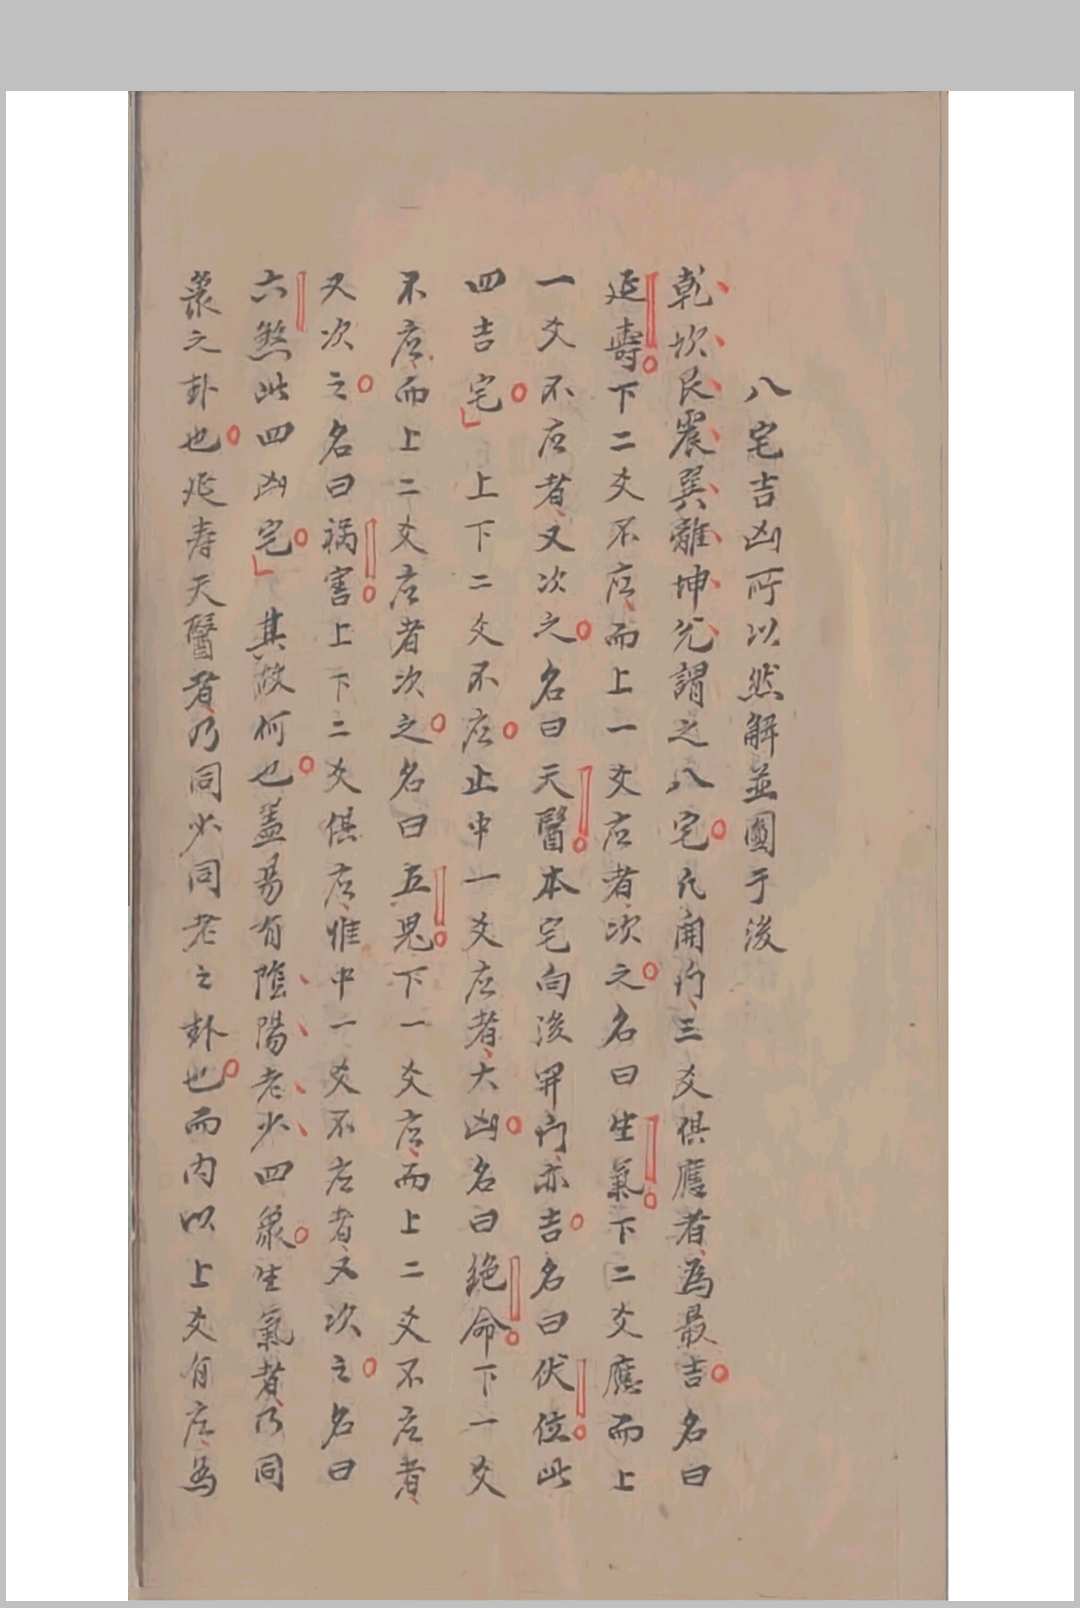 八宅吉凶所以然解並圖于後
乾坎艮震巽離坤兌謂之八宅凡開門三爻俱應者為最吉名曰
延壽下二爻不应而上一爻应者次之名曰生氣下二爻應而上
一爻不应者又次之名曰天醫本宅向後開門亦吉名曰伏位此
四吉宅上下二爻不应止中一爻应者大凶名曰絶命下一爻
不应而上二爻应者次之名曰五鬼下一爻应而上二爻不应者
又次之名曰禍害上下二爻俱应惟中一爻不应者又次之名曰
六煞此四凶宅其故何也蓋易有陰陽老少四象生氣者乃同
象之卦也延寿天醫者乃同少同老之卦也而内以上爻有应為